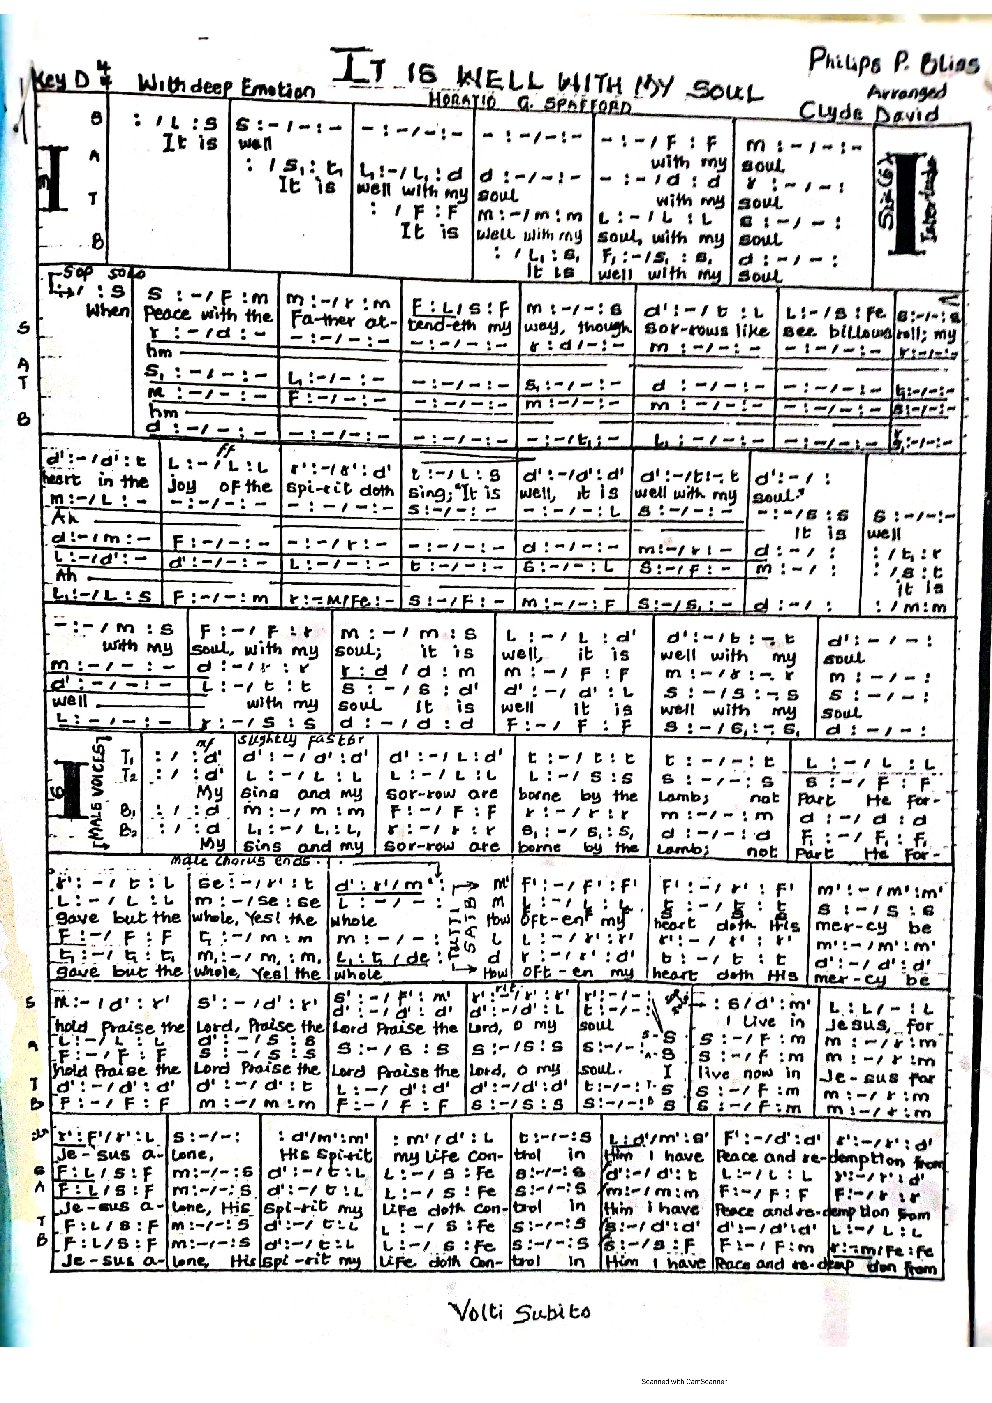 Key D 4/4 With deep Emotion IT IS WELL WITH MY SOUL Philips P. Bliss
HORATIO G. SPAFFORD Arranged
Clyde David
S : / L : S | S : - / - : - | - : - / - : - | - : - / - : - | - : - / F : F | m : - / - : -
It is well with my soul
A : / S₁ : t₁ | L₁ : - / L₁ : d | d : - / - : - | - : - / d : d | r : - / - :
It is well with my soul with my soul
T : / F : F | m : - / m : m | L : - / L : L | S : - / - :
It is well with my soul, with my soul
B : / L₁ : S₁ | F₁ : - / S₁ : S₁ | d : - / - :
It is well with my soul
Sop solo
: / : S | S : - / F : m | m : - / r : m | F : L / S : F | m : - / - : S | d' : - / - : L | L : - / S : Fe | S : - / - : S
When Peace with the Fa-ther at- tend-eth my way, though Sor-rows like see billows roll; my
r : - / d : - | - : - / - : - | - : - / - : - | r : d / - : - | m : - / - : - | - : - / - : - | r : - / - : -
hm
S₁ : - / - : - | L₁ : - / - : - | - : - / - : - | S₁ : - / - : - | d : - / - : - | - : - / - : - | t₁ : - / - : -
m : - / - : - | F : - / - : - | - : - / - : - | m : - / - : - | m : - / - : - | - : - / - : - | S : - / - : -
hm
d : - / - : - | - : - / - : - | - : - / - : - | - : - / t₁ : - | L₁ : - / - : - | - : - / - : -
ff
d' : - / d' : t | L : - / L : L | r' : - / r' : d' | t : - / L : S | d' : - / d' : d' | d' : - / t : - t | d' : - / - :
heart in the joy of the spi-rit doth sing; "It is well, it is well with my soul."
m : - / L : - | - : - / - : - | - : - / - : - | S : - / - : - | - : - / - : L | S : - / - : - | - : - / S : S | S : - / - : -
Ah It is well
d : - / m : - | F : - / - : - | - : - / r : - | - : - / - : - | d : - / - : - | m : - / r : - | d : - / - : | : / t₁ : r
L : - / d' : - | d' : - / - : - | L : - / - : - | t : - / - : - | S : - / - : L | S : - / F : - | m : - / - : | : / S : t
Ah it is
L₁ : - / L : S | F : - / - : m | r : - m / Fe : - | S : - / F : - | m : - / - : F | S : - / S₁ : - | d : - / - : | : / m : m
- : - / m : S | F : - / F : r | m : - / m : S | L : - / L : d' | d' : - / t : -. t | d' : - / - :
with my soul, with my soul; it is well, it is well with my soul
m : - / - : - | d : - / r : r | r : d / d : m | m : - / F : F | m : - / r : -. r | m : - / - :
d' : - / - : - | L : - / t : t | S : - / S : d' | d' : - / d' : L | S : - / S : -. S | S : - / - :
well with my soul it is well it is well with my soul
L : - / - : - | r : - / S : S | d : - / d : d | F : - / F : F | S : - / S₁ : -. S₁ | d : - / - :
MALE VOICES mf Slightly faster
T₁ : / : d' | d' : - / d' : d' | d' : - / L : d' | t : - / t : t | t : - / - : t | L : - / L : L
T₂ : / : d' | L : - / L : L | L : - / L : L | L : - / S : S | S : - / - : S | S : - / F : F
My sins and my sor-row are borne by the Lamb; not Part He for-
B₁ : / : d | m : - / m : m | F : - / F : F | r : - / r : r | m : - / - : m | d : - / d : d
B₂ : / : d | L₁ : - / L₁ : L₁ | r : - / r : r | S₁ : - / S₁ : S₁ | d : - / - : d | F₁ : - / F₁ : F₁
My sins and my sor-row are borne by the Lamb; not Part He for-
male Chorus ends
r' : - / t : L | Se : - / r' : t | d' : r' / m' : | m' | F' : - / F' : F' | F' : - / r' : F' | m' : - / m' : m'
L : - / L : L | m : - / Se : Se | L : - / - : | S : - / S : S
gave but the whole, Yes! the whole How oft-en my heart doth His mer-cy be
F : - / F : F | t₁ : - / m : m | m : - / - : | L | L : - / r' : r' | r' : - / r' : L | m' : - / m' : m'
t₁ : - / t₁ : t₁ | m₁ : - / m₁ : m₁ | L₁ : t₁ / de : | d | r : - / d' : d' | t : - / t : t | d' : - / d' : d'
gave but the whole, Yes! the whole TUTTI SATB How oft-en my heart doth His mer-cy be
rit
S m : - / d' : r' | S' : - / d' : r' | S' : - / F' : m' | r' : - / d' : r' | r' : - / - : | : S / d' : m' | L : L / - : L
hold Praise the Lord, Praise the Lord Praise the Lord, o my soul I Live in Jesus, for
A L : - / L : L | d' : - / S : S | S : - / S : S | S : - / S : S | S : - / - : S | S : - / F : m | m : - / r : m
F : - / F : F | S : - / S : S | S : - / F : m | m : - / r : m
hold Praise the Lord Praise the Lord Praise the Lord, o my soul. I live now in Je-sus for
T d' : - / d' : d' | d' : - / d' : t | L : - / d' : d' | d' : - / d' : d' | t : - / - : S | S : - / F : m | m : - / r : m
B F : - / F : F | m : - / m : m | F : - / F : F | S : - / S : S | S : - / - : S | S : - / F : m | m : - / r : m
r' : F' / r' : L | S : - / - : | : d' / m' : m' | : m' / d' : L | t : - / - : S | L : d' / m' : S' | F' : - / d' : d' | r' : - / r' : d'
Je-sus a-lone, His Spi-rit my Life Con-trol in Him I have Peace and re-demption from
S F : L / S : F | m : - / - : S | d' : - / t : L | L : - / S : Fe | S : - / - : S | d' : - / d' : t | L : - / L : L | r' : - / r' : d'
A F : L / S : F | m : - / - : S | d' : - / t : L | L : - / S : Fe | S : - / - : S | m : - / m : m | F : - / F : F | F : - / r : r
Je-sus a-lone, His Spi-rit my Life doth Con-trol in Him I have Peace and re-demption from
T F : L / S : F | m : - / - : S | d' : - / t : L | L : - / S : Fe | S : - / - : S | S : - / d' : d' | d' : - / d' : d' | L : - / L : L
B F : L / S : F | m : - / - : S | d' : - / t : L | L : - / S : Fe | S : - / - : S | S : - / S : F | F : - / F : m | r : - m / Fe : Fe
Je-sus a-lone, His Spi-rit my Life doth Con-trol in Him I have Peace and re-demp tion from
Volti Subito
Scanned with CamScanner